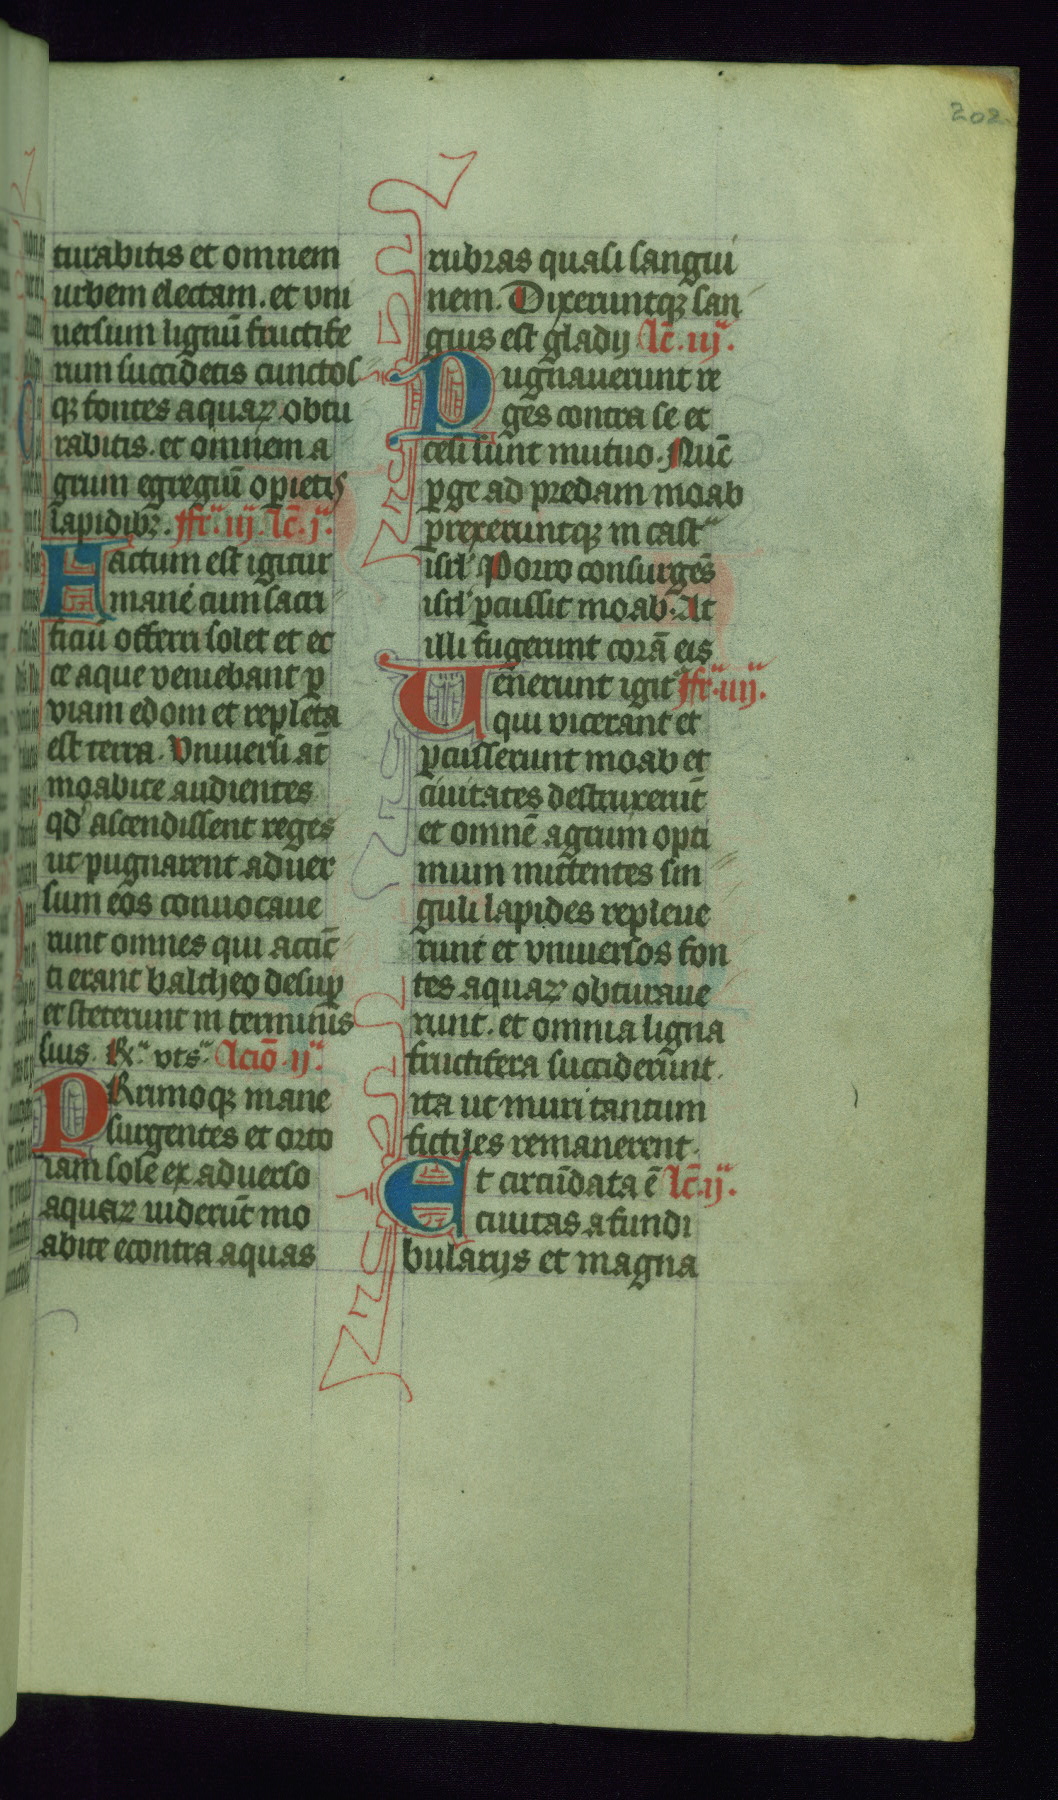 202
turabitis et omnem
urbem electam. et vni
uersum lignū fructife
rum succidetis cunctos
qꝫ fontes aquaꝝ obtu
rabitis. et omnem a
grum egregiū opietis
lapidibꝫ. ffr̄. iij. lc̄. j.
Factum est igitur
mane cum sacri
ficiū offerri solet et ec
ce aque veniebant ꝑ
viam edom et repleta
est terra. Vniuersi at̄
moabite audientes
qd̓ ascendissent reges
ut pugnarent aduer
sum eos conuocaue
runt omnes qui accīc
ti erant baltheo desuꝑ
et steterunt in terminis
suis. R̄. vts. lcio. ij.
PRrimoqꝫ mane
surgentes et orto
iam sole ex aduerso
aquaꝝ uiderūt mo
abite econtra aquas
rubras quasi sangui
nem. Dixeruntqꝫ san
guis est gladij lc̄. iij.
Pugnauerunt re
ges contra se et
cesi sunt mutuo. Nūc
ꝑge ad predam moab
prexeruntqꝫ in cast
isrl̓ Porro consurgēs
isrl̓ ꝑcussit moab. At
illi fugerunt corā eis
Uenerunt igit ffr̄. iiij.
qui vicerant et
ꝑcusserunt moab et
ciuitates destruxerūt
et omnē agrum opti
mum mittentes sin
guli lapides repleue
runt et vniuersos fon
tes aquaꝝ obturaue
runt. et omnia ligna
fructifera succiderunt.
ita ut muri tantum
fictiles remanerent.
Et circūdata ē lc̄. ij.
ciuitas a fundi
bularijs et magna